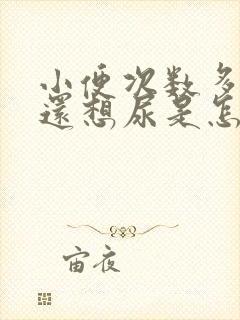 小便次数多
還想尿是怎
宙夜